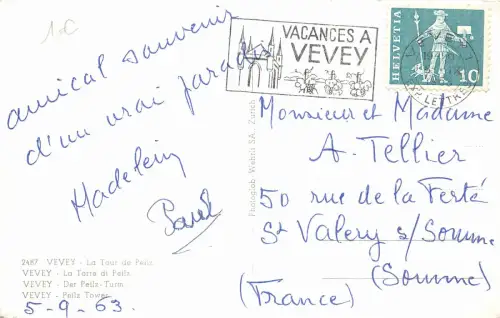 1.C
amical souvenir
d'un vrai paradis
Madelein
Paul
2487 VEVEY - La Tour de Peilz
VEVEY - La Torre di Peilz
VEVEY - Der Peilz-Turm
VEVEY - Peilz Tower
5-9-63
Photoglob-Wehrli SA, Zurich
VACANCES A
VEVEY
HELVETIA
10
Monsieur et Madame
A. Tellier
50 rue de la Ferté
St Valery s/Somme
(Somme)
(France)